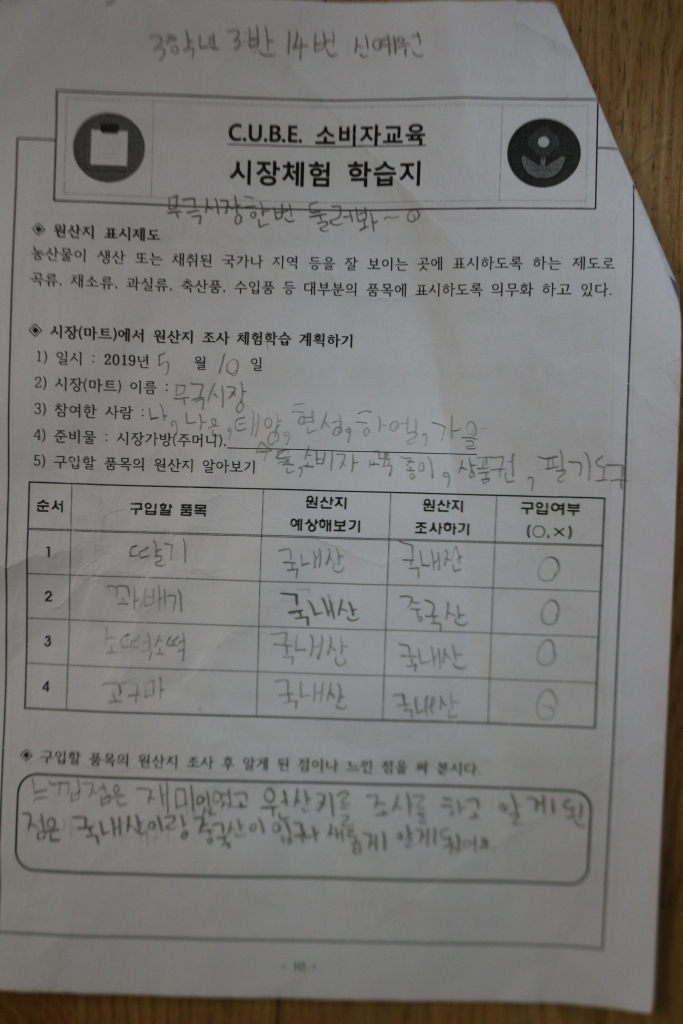 3학년 3반 14번 신예원
C.U.B.E. 소비자교육
시장체험 학습지
무극시장 한번 둘러봐~
◈ 원산지 표시제도
농산물이 생산 또는 채취된 국가나 지역 등을 잘 보이는 곳에 표시하도록 하는 제도로
곡류, 채소류, 과실류, 축산품, 수입품 등 대부분의 품목에 표시하도록 의무화 하고 있다.
◈ 시장(마트)에서 원산지 조사 체험학습 계획하기
1) 일시 : 2019년 5 월 10 일
2) 시장(마트) 이름 : 무극시장
3) 참여한 사람 : 나, 나은, 태양, 현성, 하엘, 가을
4) 준비물 : 시장가방(주머니),
소비자 교육 종이, 상품권, 필기도구
5) 구입할 품목의 원산지 알아보기
순서 구입할 품목 원산지 예상해보기 원산지 조사하기 구입여부 (○,×)
1 딸기 국내산 국내산 O
2 꽈배기 국내산 중국산 O
3 소떡소떡 국내산 국내산 O
4 고구마 국내산 국내산 O
◈ 구입할 품목의 원산지 조사 후 알게 된 점이나 느낀 점을 써 봅시다.
느낌점은 재미있었고 원산지를 조사를 하고 알게된
점은 국내산이랑 중국산이 새롭게 알게됬어요.
- 10 -